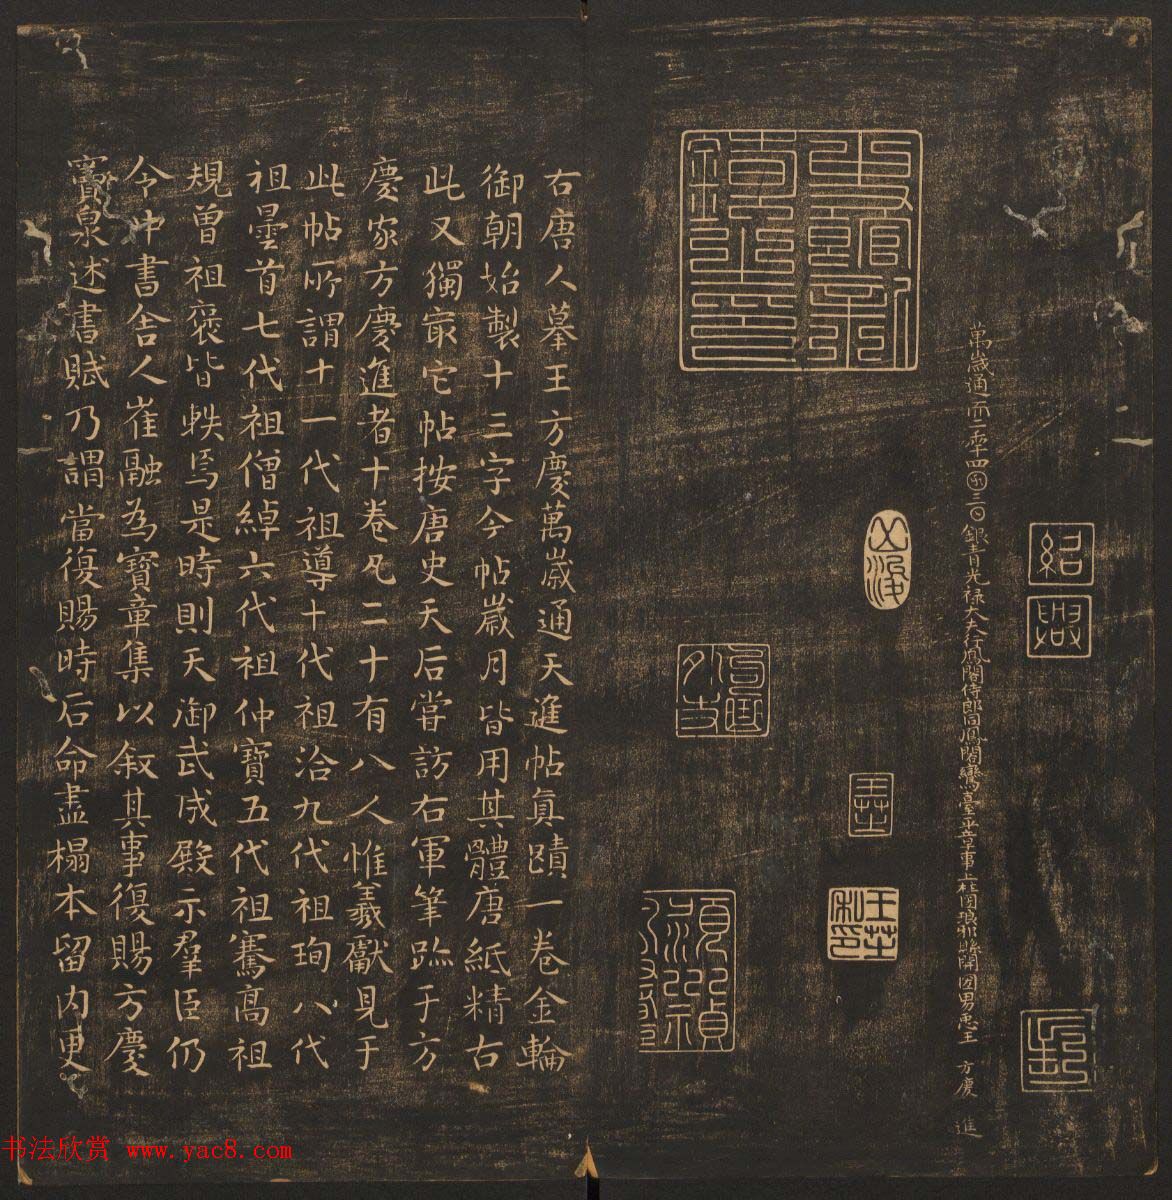 萬歲通𠀑二年四𠥱三〇銀青光祿大夫行鳳閣侍郎同鳳閣鸞臺平章事上柱國瑯耶縣開國男臣王 方慶 進
史館新鑄之印
紹興
右唐人摹王方慶萬歲通天進帖真蹟一卷金輪
御朝始製十三字今帖歲月皆用其體唐紙精古
此又獨冣它帖按唐史天后嘗訪右軍筆跡于方
慶家方慶進者十卷凡二十有八人惟羲獻見于
此帖所謂十一代祖導十代祖洽九代祖珣八代
祖曇首七代祖僧綽六代祖仲寶五代祖騫高祖
規曾祖褒皆軼焉是時則天御武成殿示羣臣仍
令中書舍人崔融為寶章集以叙其事復賜方慶
竇泉述書賦乃謂當復賜時后命盡榻本留內更
书法欣赏 www.yac8.com